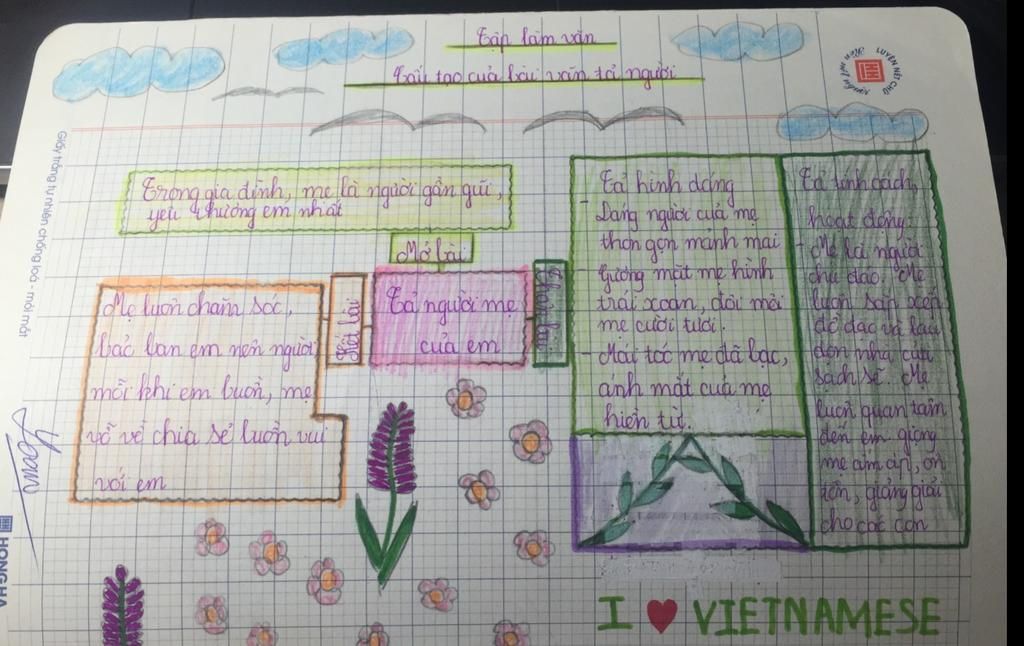 Tập làm văn
Cấu tạo của bài văn tả người
LUYỆN NÉT CHỮ
Rèn nết người
Giấy trắng tự nhiên chống loá - mỏi mắt
Trong gia đình, mẹ là người gần gũi,
yêu thương em nhất
Mở bài
Tả người mẹ
của em
Kết bài
Mẹ luôn chăm sóc,
bảo ban em nên người
mỗi khi em buồn, mẹ
vỗ về chia sẻ luôn vui
với em
Thân bài
Tả hình dáng
- Dáng người của mẹ
thon gọn mảnh mai
- Gương mặt mẹ hình
trái xoan, đôi môi
mẹ cười tươi.
- Mái tóc mẹ đã bạc,
ánh mắt của mẹ
hiền từ.
Tả tính cách,
hoạt động
- Mẹ là người
chu đáo. Mẹ
luôn sắp xếp
đồ đạc và lau
dọn nhà cửa
sạch sẽ. Mẹ
luôn quan tâm
đến em giọng
mẹ ấm áp, ôn
tồn, giảng giải
cho các con
HONG HA
I ♥ VIETNAMESE